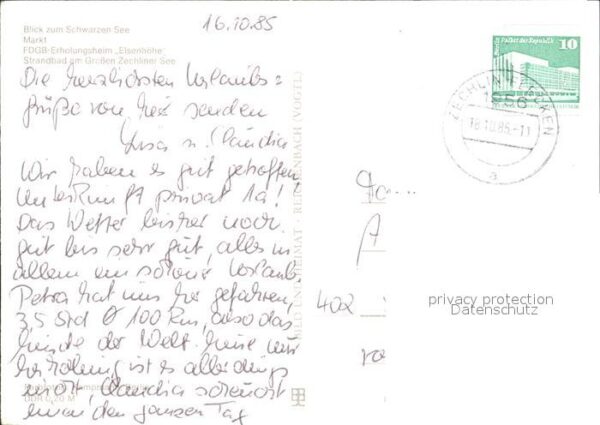 16.10.85
Blick zum Schwarzen See
Markt
FDGB-Erholungsheim „Elsenhöhe"
Strandbad am Großen Zechliner See
Die herzlichsten Urlaubs=
grüße von hier senden
Lisa u. Claudia
Wir haben es gut getroffen
Unterkunft privat 1a!
Das Wetter bisher noch
gut bis sehr gut, alles in
allem ein schöner Urlaub.
Petra hat uns her gefahren,
3,5 Std 100 km, also das
Ende der Welt.
Erholung ist es allerdings
Claudia
man den ganzen Tag
DDR 0,20 M
BILD UND HEIMAT · REICHENBACH (VOGTL)
Palast der Republik
10
ZECHLIN FLECKEN
1956
18.10.85-11
a
402
privacy protection
Datenschutz